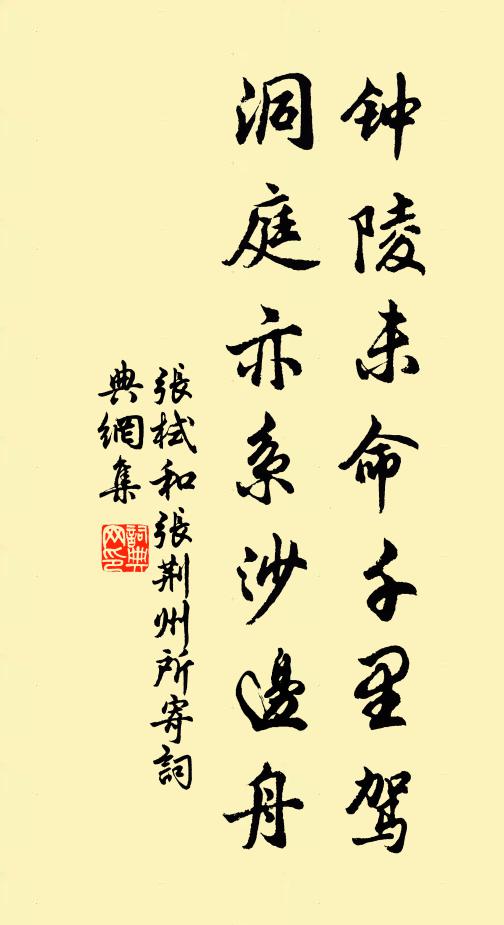 钟陵未命千里驾
洞庭亦系沙边舟
張栻和張荆州所寄詞
典網集
詞典
网印